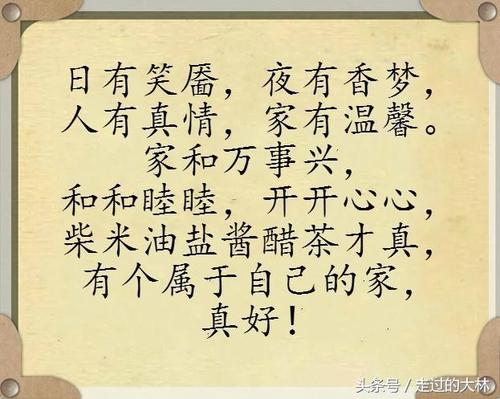 日有笑靥，夜有香梦，
人有真情，家有温馨。
家和万事兴，
和和睦睦，开开心心，
柴米油盐酱醋茶才真，
有个属于自己的家，
真好！
头条号/走过的大林